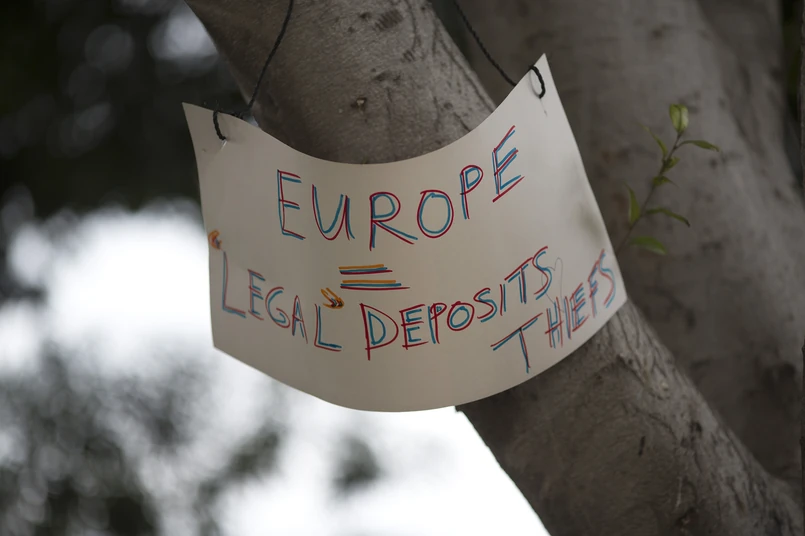 EUROPE
=
"LEGAL" DEPOSITS
THIEFS